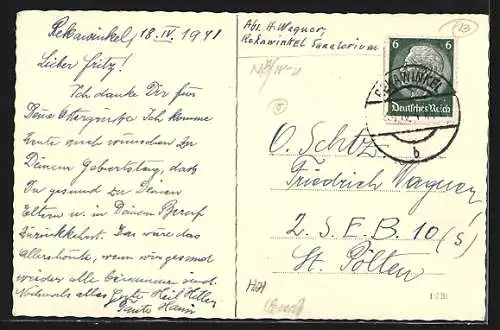 Rekawinkel, 18. IV. 1941
Lieber Fritz!
Ich danke Dir für
Deine Ostergrüße. Ich komme
heute auch wünschen zu
Deinem Geburtstag, daß
Du gesund zu Deinen
Eltern u. in Deinen Beruf
zurückkehrst. Das wäre das
Allerschönste, wenn wir gesund
wieder alle beisammen sind.
Nochmals alles Gute Heil Hitler
Tante
Abs. H. Wagner,
Rekawinkel Sanatorium
6 6
Deutsches Reich
REKAWINKEL
b
O. Schtz.
Friedrich Wagner
2. S. E. B. 10 (S)
St. Pölten